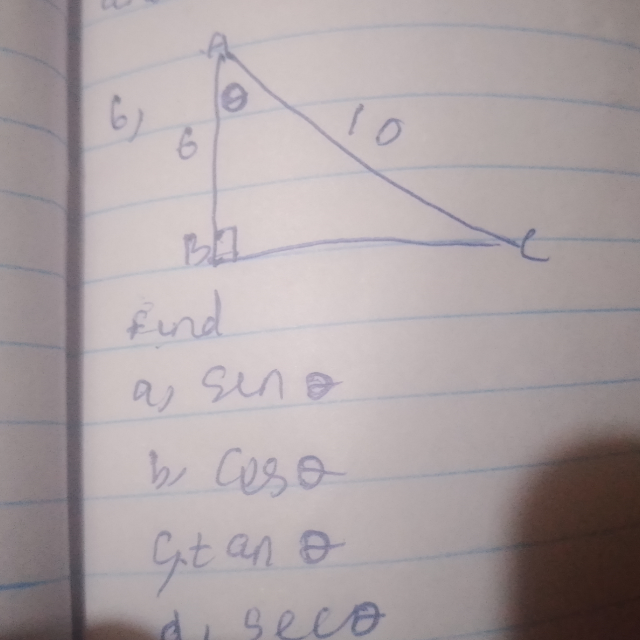 A
6, θ
6 10
B C
Find
a, sin θ
b, Cos θ
c, tan θ
d, sec θ